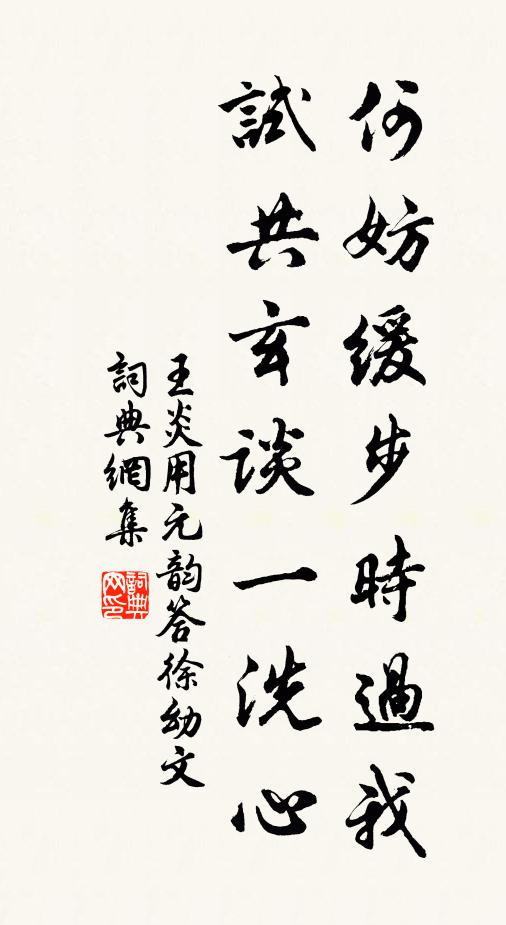 何妨緩步時過我
試共玄談一洗心
王炎用元韵答徐幼文
詞典網集
詞典網印